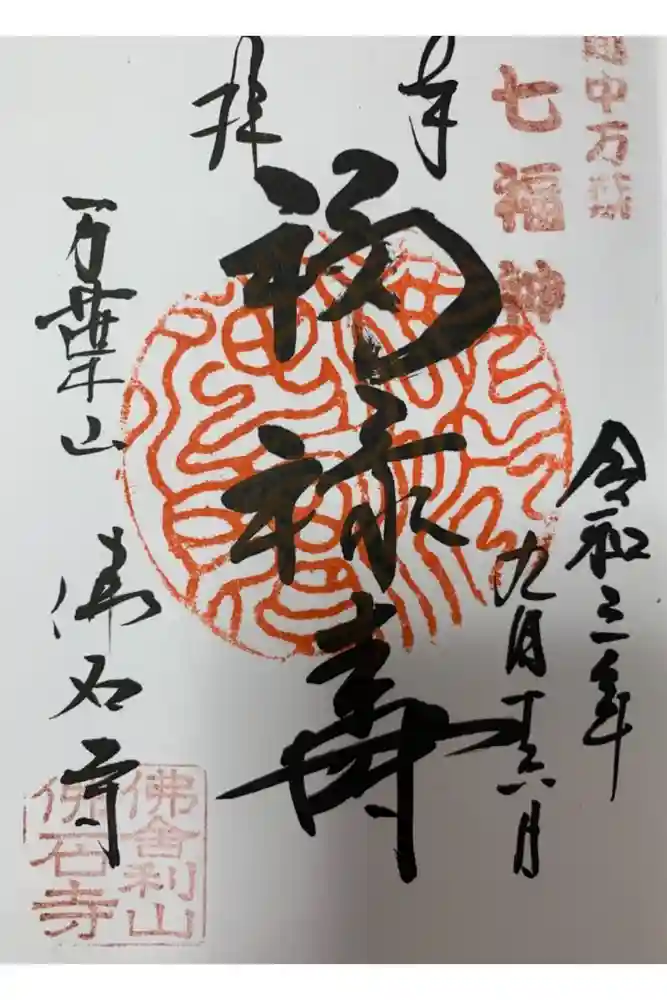 中万葉
七福神
奉拝
令和三年
九月十六日
福禄寿
万葉山
佛石寺
佛舎利山
佛石寺